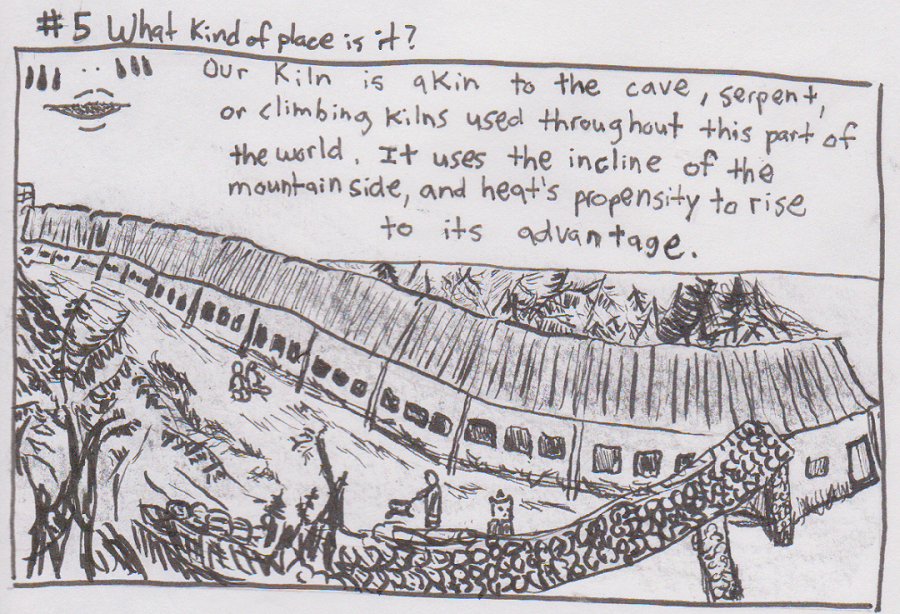 #5 What kind of place is it?
Our kiln is akin to the cave, serpent,
or climbing kilns used throughout this part of
the world. It uses the incline of the
mountain side, and heat's propensity to rise
to its advantage.